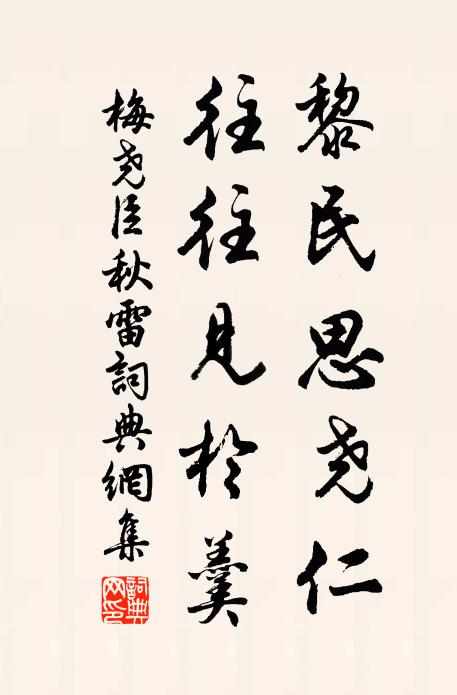 黎民思尧仁
往往见於羹
梅尧臣秋雷詞典網集
詞典网印